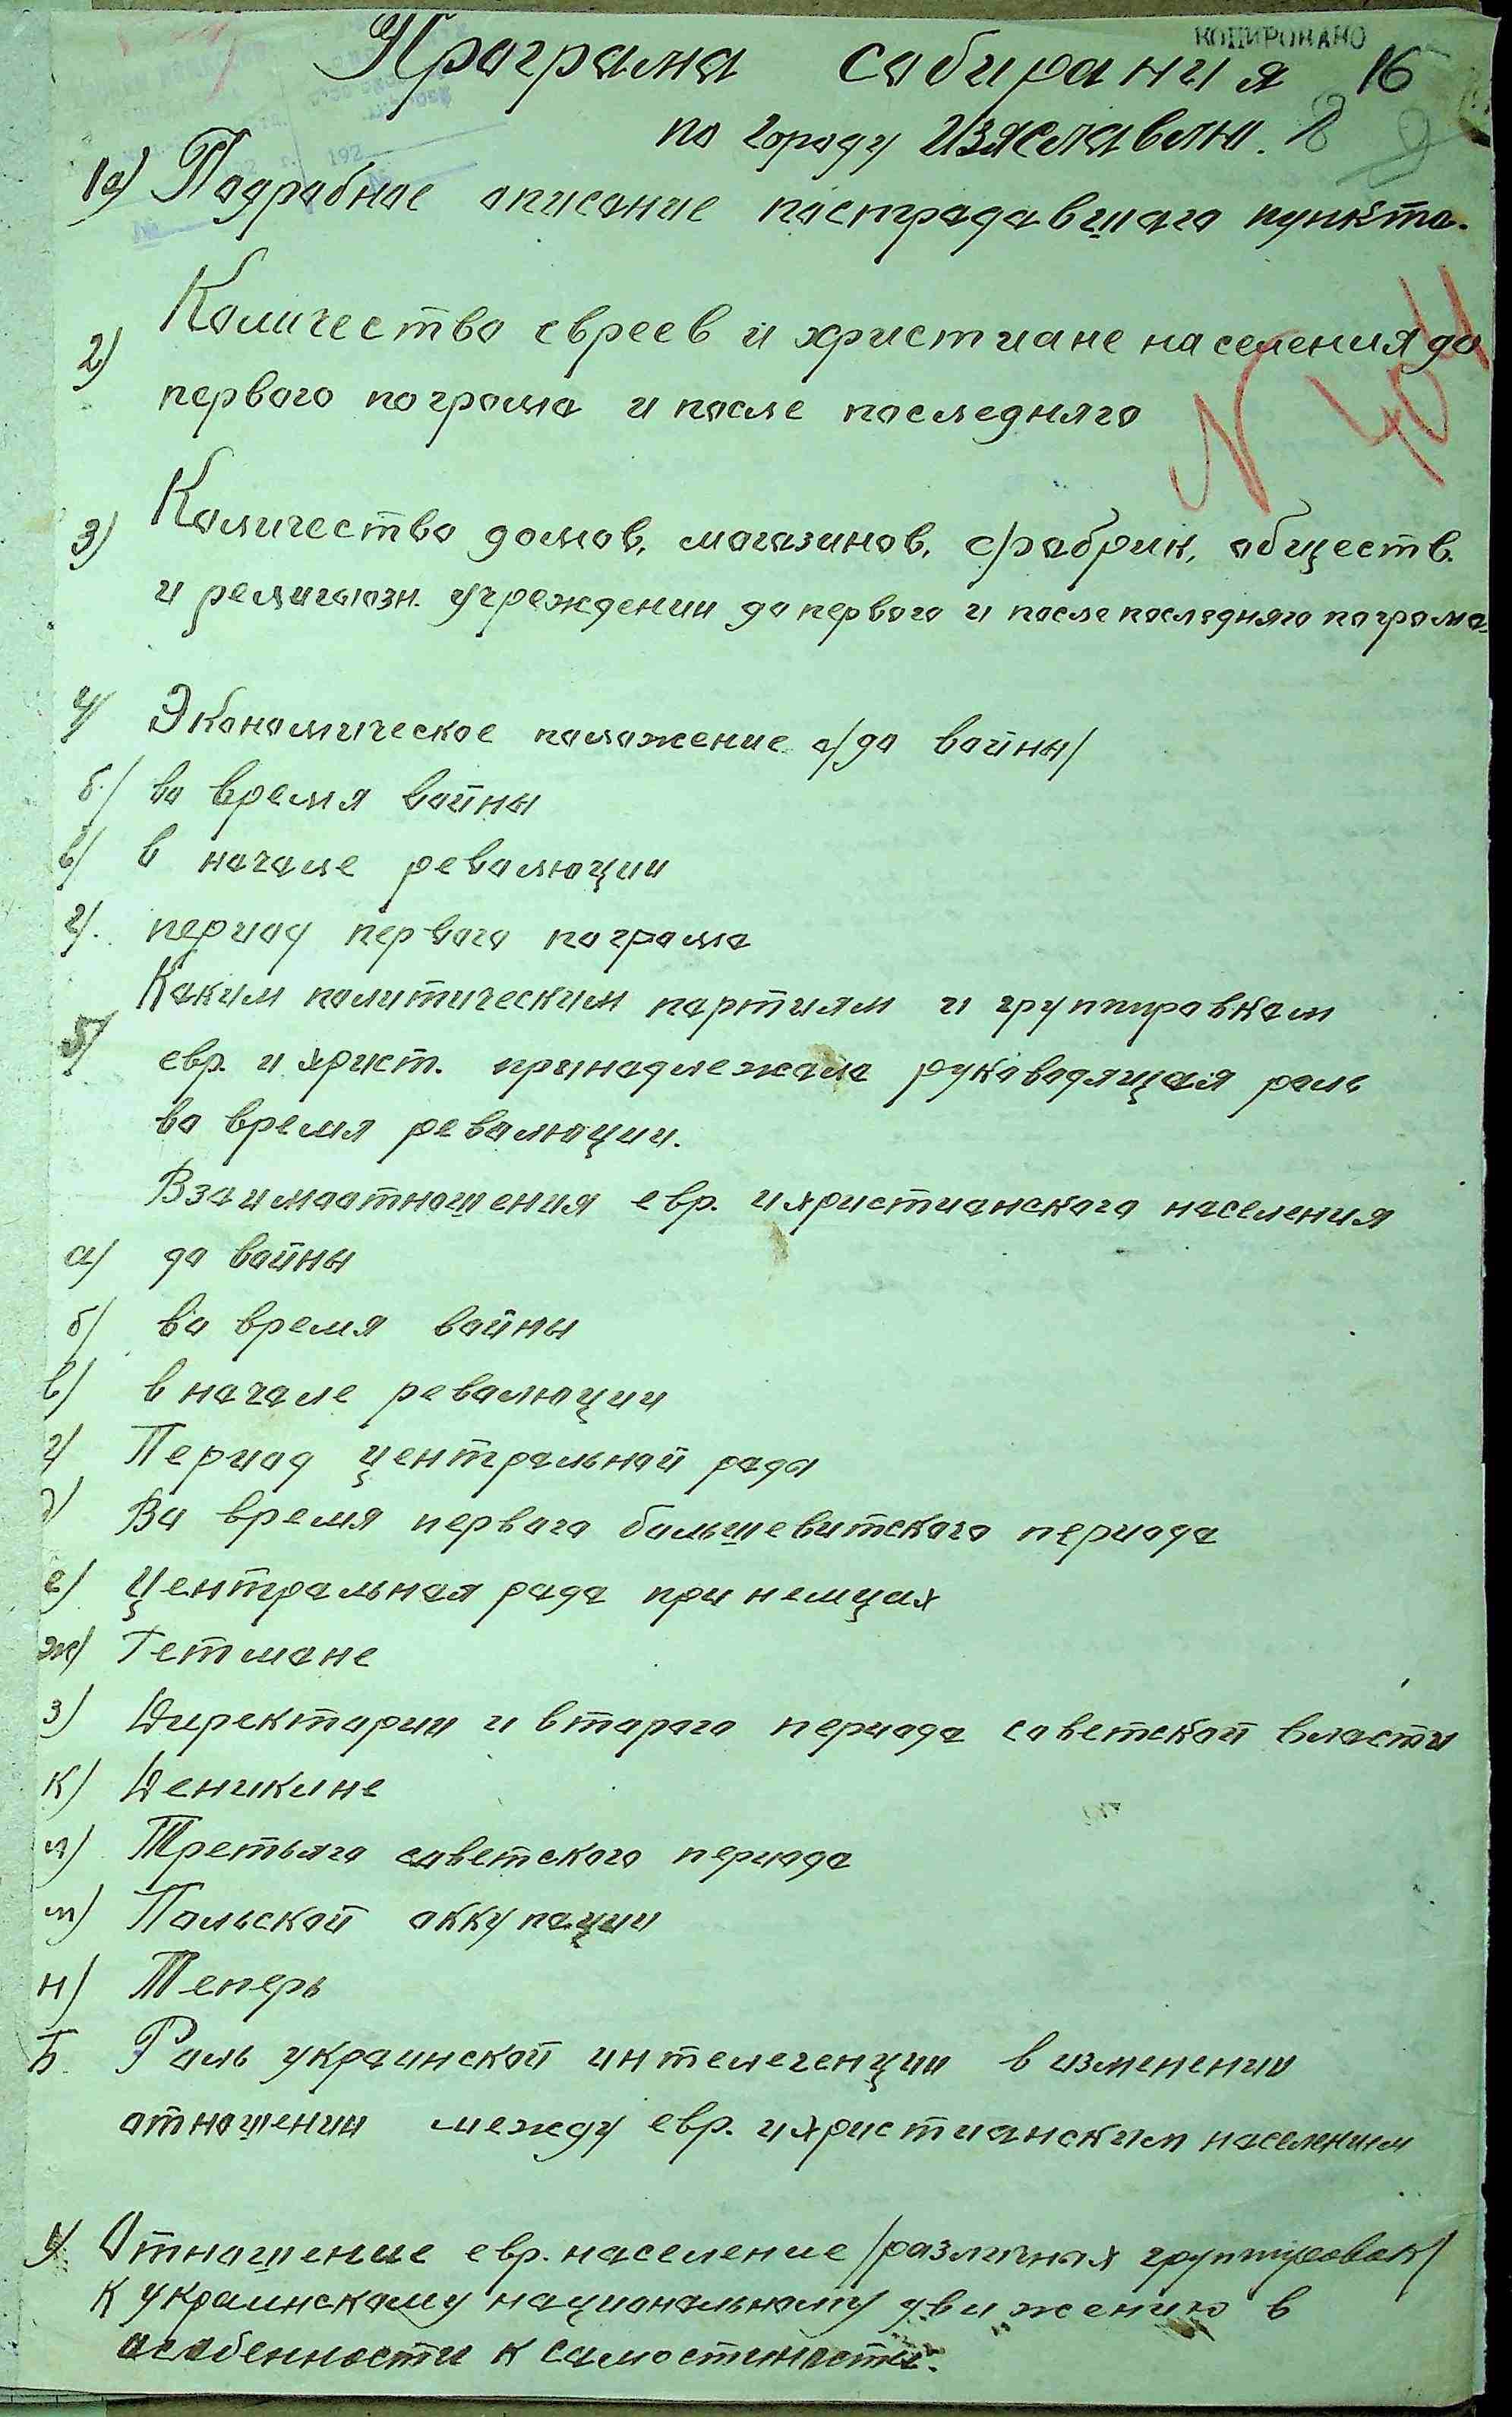 КОПИРОВАНО
Програма собирания 16
по городу Изяславлю. 8
192
№
1а) Подробное описание пострадавшаго пункта.
N 404
2) Количество евреев и христиане населения до
первого погрома и после последняго
3) Количество домов, магазинов, фабрик, обществ.
и религиозн. учреждении до первого и после последняго погрома.
4) Экономическое положение а/ до войны/
б/ во время войны
в/ в начале революции
г/. период первого погрома
Каким политическим партиям и группировкам
5) евр. и христ. принадлежала руководящая роль
во время революции.
Взаимоотношения евр. и христианского населения
а) до войны
б/ во время войны
в) в начале революции
г) Период центральной рады
д) Во время первого большевитского периода
е) Центральная рада при немцах
ж) Гетмане
з) Директории и второго периода советской власти
к) Деникине
л) Третьяго советского периода
м) Польской оккупации
н) Теперь
Б. Роль украинской интелегенции в изменении
отношении между евр. и христианским населением
Отношение евр. население /различных группировок/
к украинскому национальному движению в
особенности к самостиности.